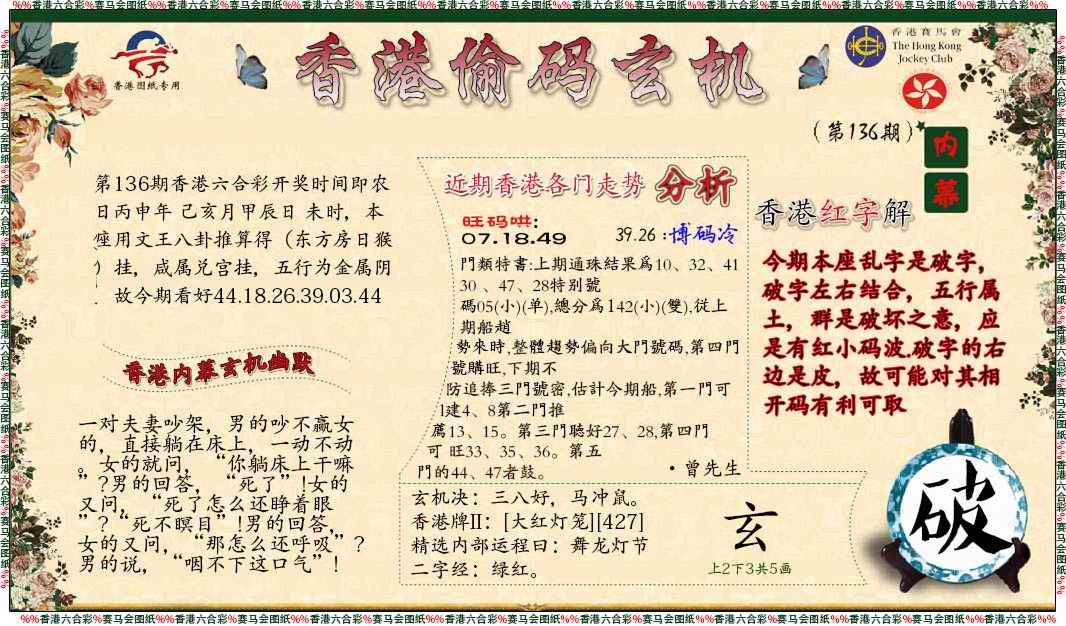 %%香港六合彩%赛马会图纸%%香港六合彩%赛马会图纸%%香港六合彩%赛马会图纸%%香港六合彩%赛马会图纸%%香港六合彩%赛马会图纸%%香港六合彩%赛马会图纸%%香港六合彩%赛马会图纸%%
香港图纸专用
香港偷码玄机
香港賽馬會
The Hong Kong
Jockey Club
(第136期)
内
幕
第136期香港六合彩开奖时间即农
日丙申年 己亥月甲辰日 未时，本
座用文王八卦推算得（东方房日猴
）挂，咸属兑宫挂，五行为金属阴
故今期看好44.18.26.39.03.44
香港内幕玄机幽默
一对夫妻吵架，男的吵不赢女
的，直接躺在床上，一动不动
。女的就问，“你躺床上干嘛
”?男的回答，“死了”!女的
又问，“死了怎么还睁着眼
”?“死不瞑目”!男的回答，
女的又问，“那怎么还呼吸”?
男的说，“咽不下这口气”!
近期香港各门走势 分析
旺码哄:
07.18.49
39.26 :博码冷
門類特書:上期通珠結果爲10、32、41
30 、47、28特别號
碼05(小)(单),總分爲142(小)(雙),從上
期船趙
勢來時,整體趨勢偏向大門號碼,第四門
號購旺,下期不
防追捧三門號密,估計今期船,第一門可
1建4、8第二門推
薦13、15。第三門聽好27、28,第四門
可 旺33、35、36。第五
門的44、47者鼓。
·曾先生
玄机决：三八好，马冲鼠。
香港牌II：[大红灯笼][427]
精选内部运程曰：舞龙灯节
二字经：绿红。
玄
上2下3共5画
香港红字解
今期本座乱字是破字，
破字左右结合，五行属
土，群是破坏之意，应
是有红小码波.破字的右
边是皮，故可能对其相
开码有利可取
破
%%香港六合彩%赛马会图纸%%香港六合彩%赛马会图纸%%香港六合彩%赛马会图纸%%香港六合彩%赛马会图纸%%香港六合彩%赛马会图纸%%香港六合彩%赛马会图纸%%香港六合彩%赛马会图纸%%